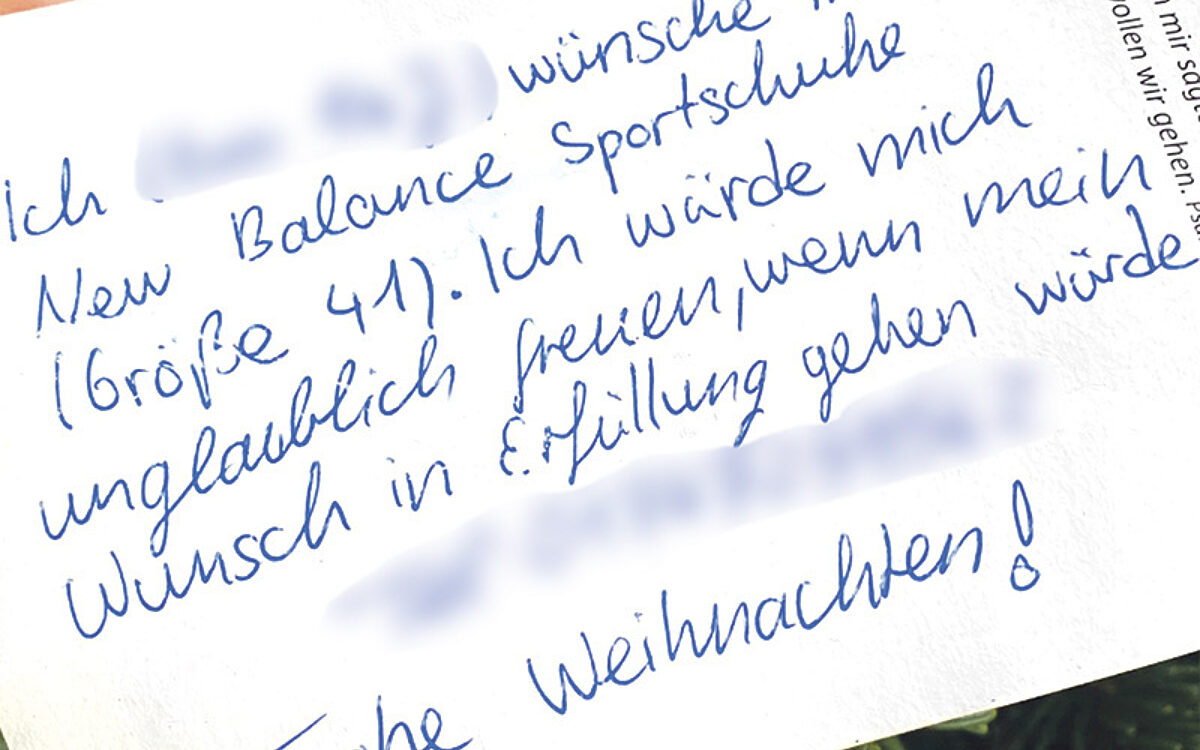 Ich wünsche
New Balance Sportschuhe
(Größe 41). Ich würde mich
unglaublich freuen, wenn mein
Wunsch in Erfüllung gehen würde
Weihnachten!
mir sagte
wollen wir gehen. Psa